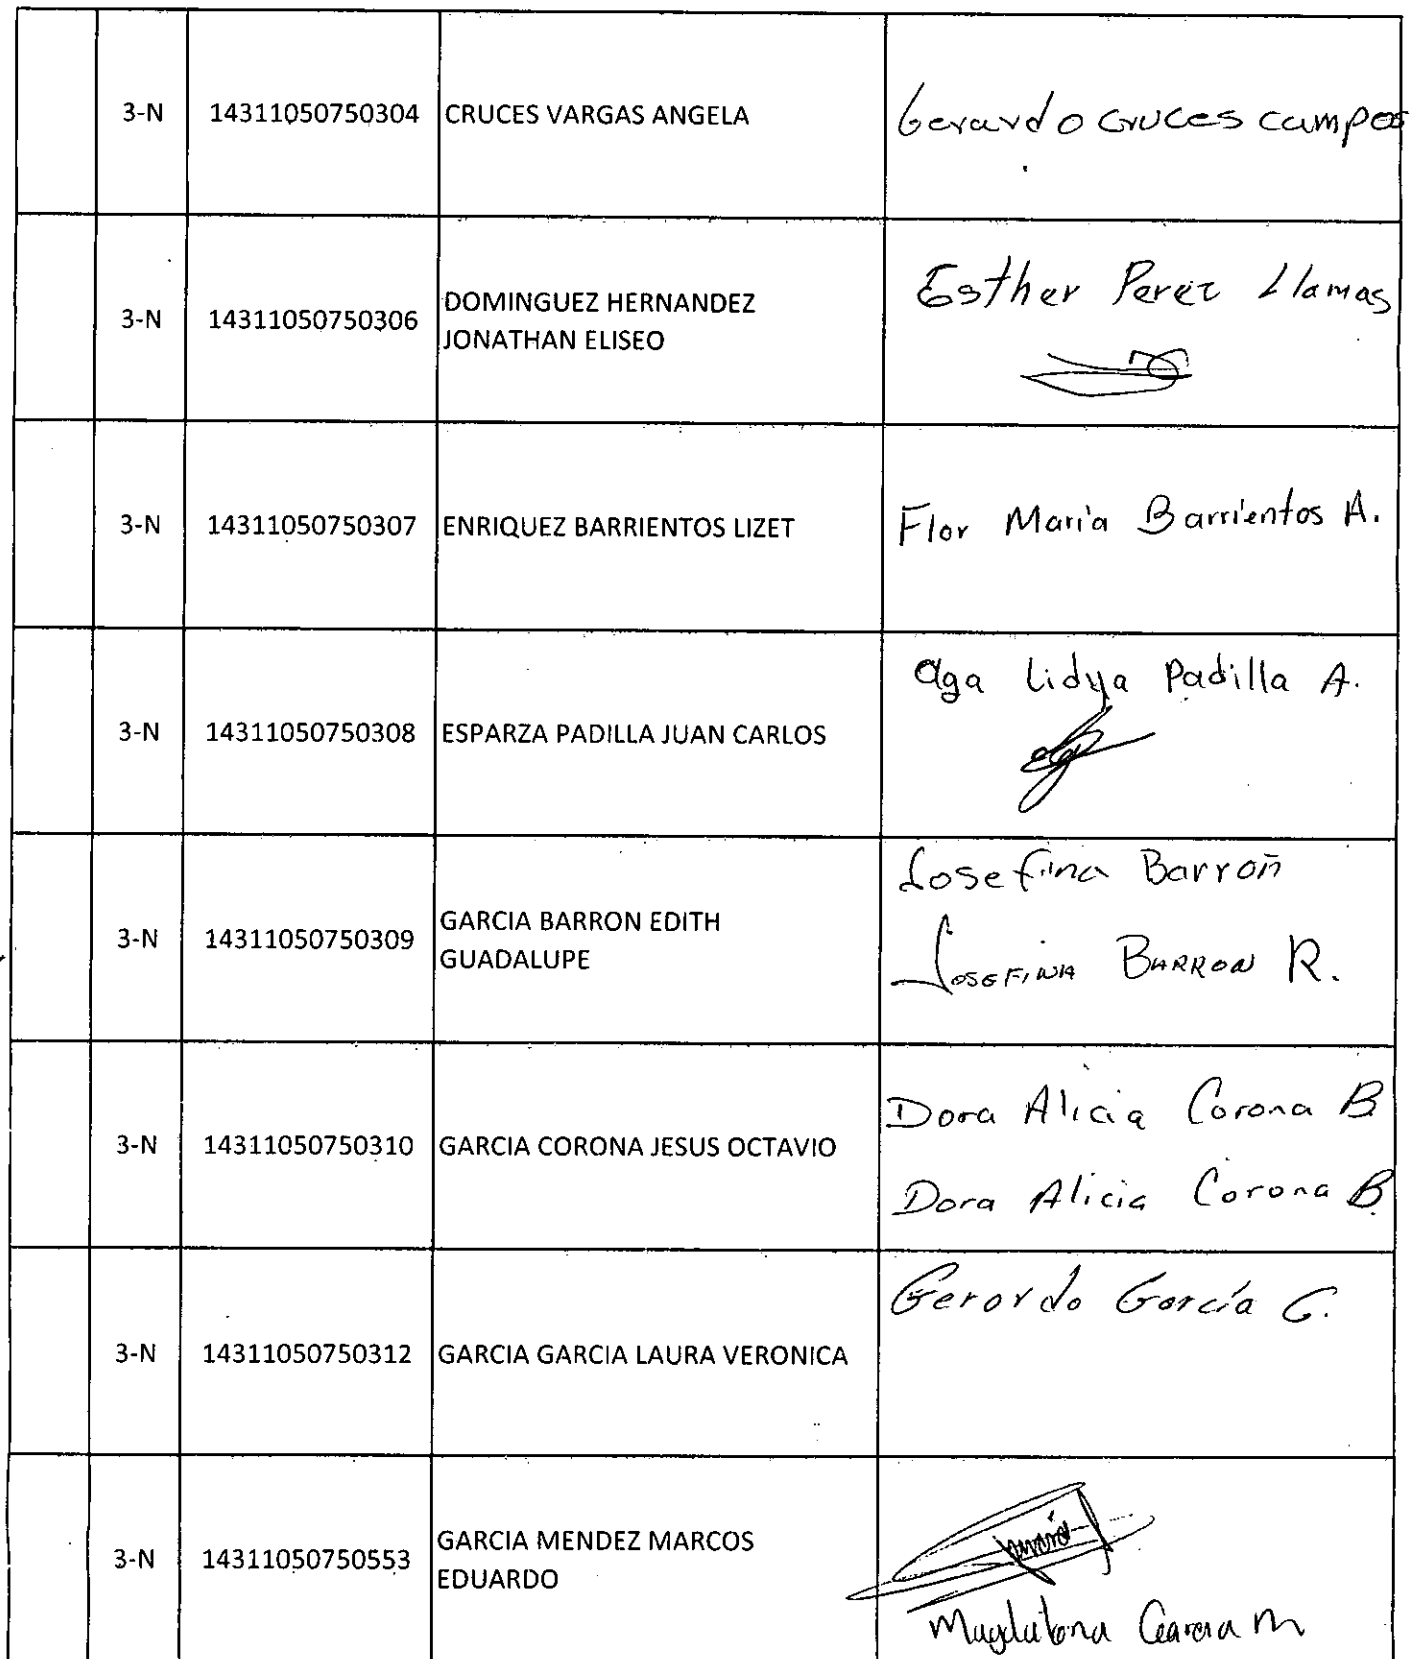 3-N 14311050750304 CRUCES VARGAS ANGELA Gerardo cruces campos
3-N 14311050750306 DOMINGUEZ HERNANDEZ
JONATHAN ELISEO
Esther Perez Llamas
3-N 14311050750307 ENRIQUEZ BARRIENTOS LIZET Flor Maria Barrientos A.
3-N 14311050750308 ESPARZA PADILLA JUAN CARLOS Olga Lidya Padilla A.
3-N 14311050750309 GARCIA BARRON EDITH
GUADALUPE
Josefina Barron
JOSEFINA BARRON R.
3-N 14311050750310 GARCIA CORONA JESUS OCTAVIO Dora Alicia Corona B
Dora Alicia Corona B.
3-N 14311050750312 GARCIA GARCIA LAURA VERONICA Gerardo García G.
3-N 14311050750553 GARCIA MENDEZ MARCOS
EDUARDO
Magdalena Garcia M